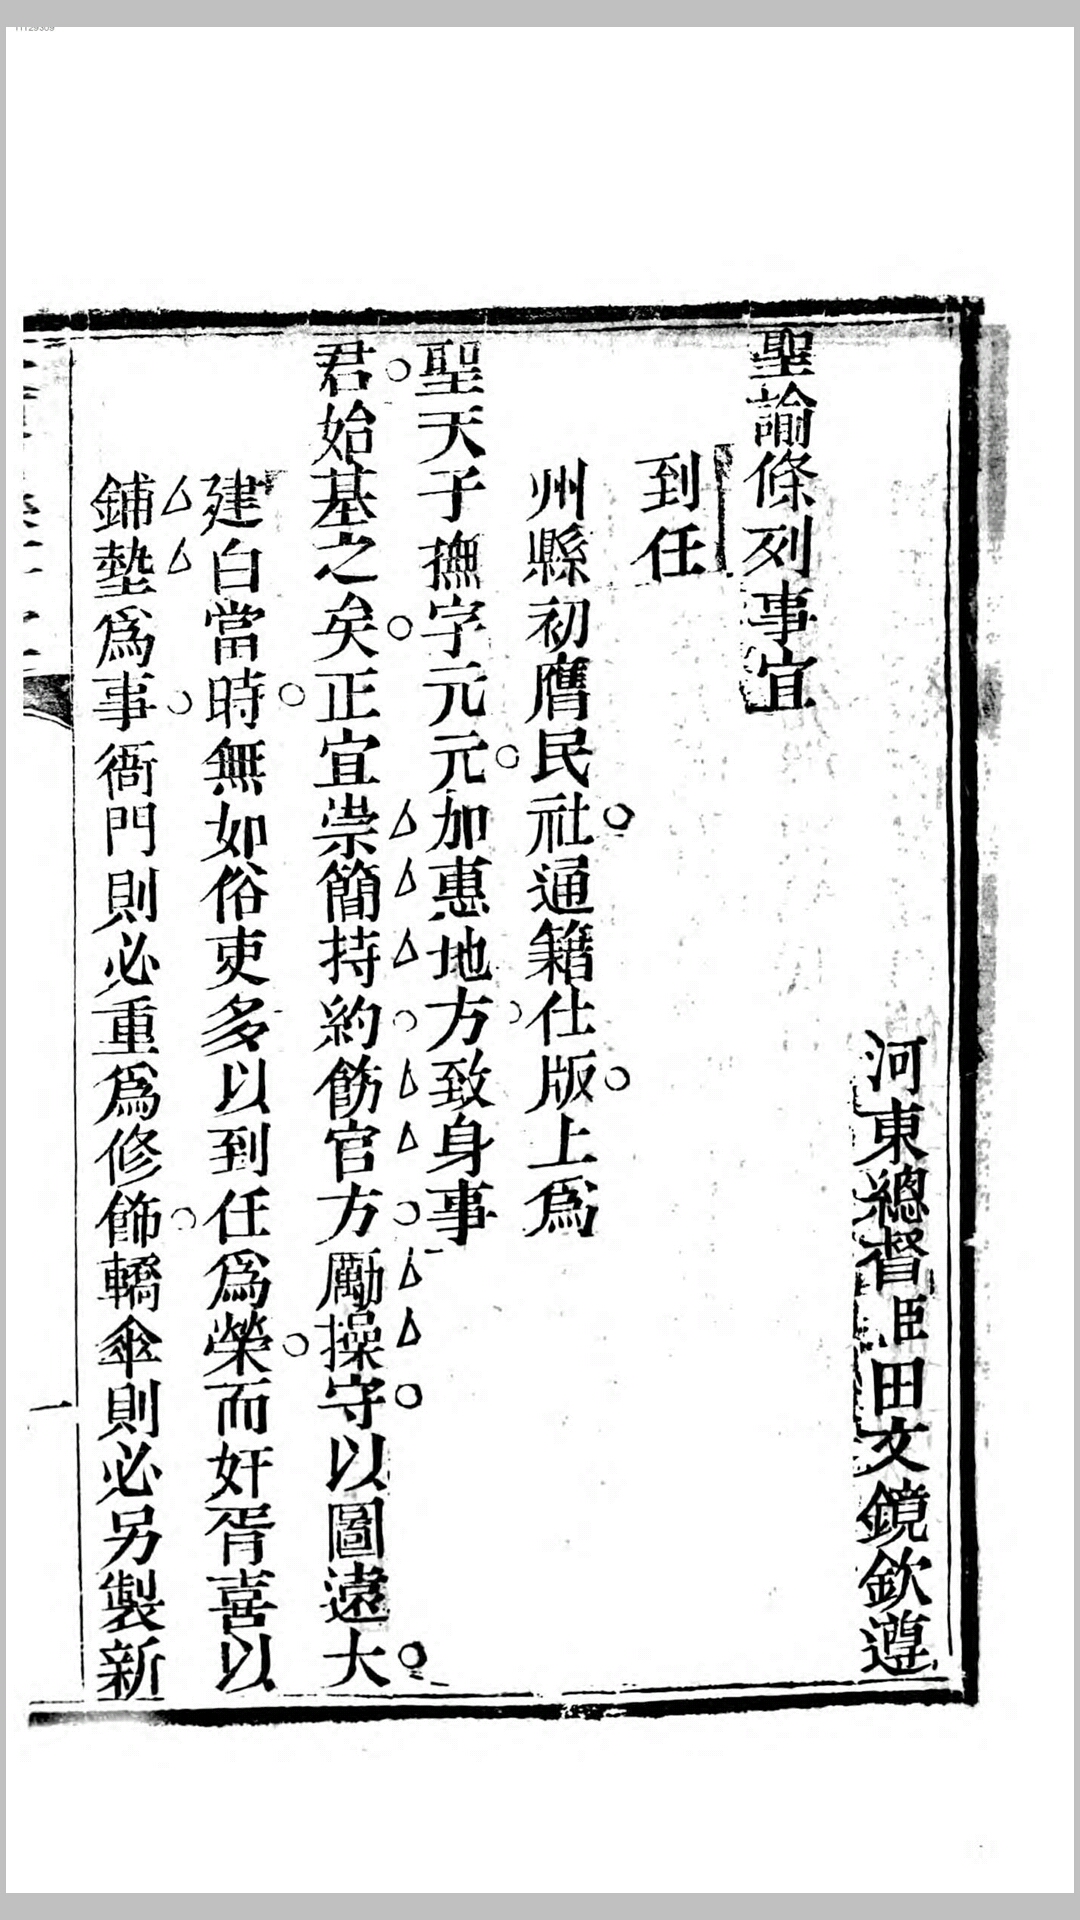 河東總督臣田文鏡欽遵
聖諭條列事宜
到任
州縣初膺民社通籍仕版上爲
聖天子撫字元元加惠地方致身事
君始基之矣正宜崇簡持約飭官方勵操守以圖遠大
建白當時無如俗吏多以到任爲榮而奸胥喜以
鋪墊爲事衙門則必重爲修飾轎傘則必另製新
一